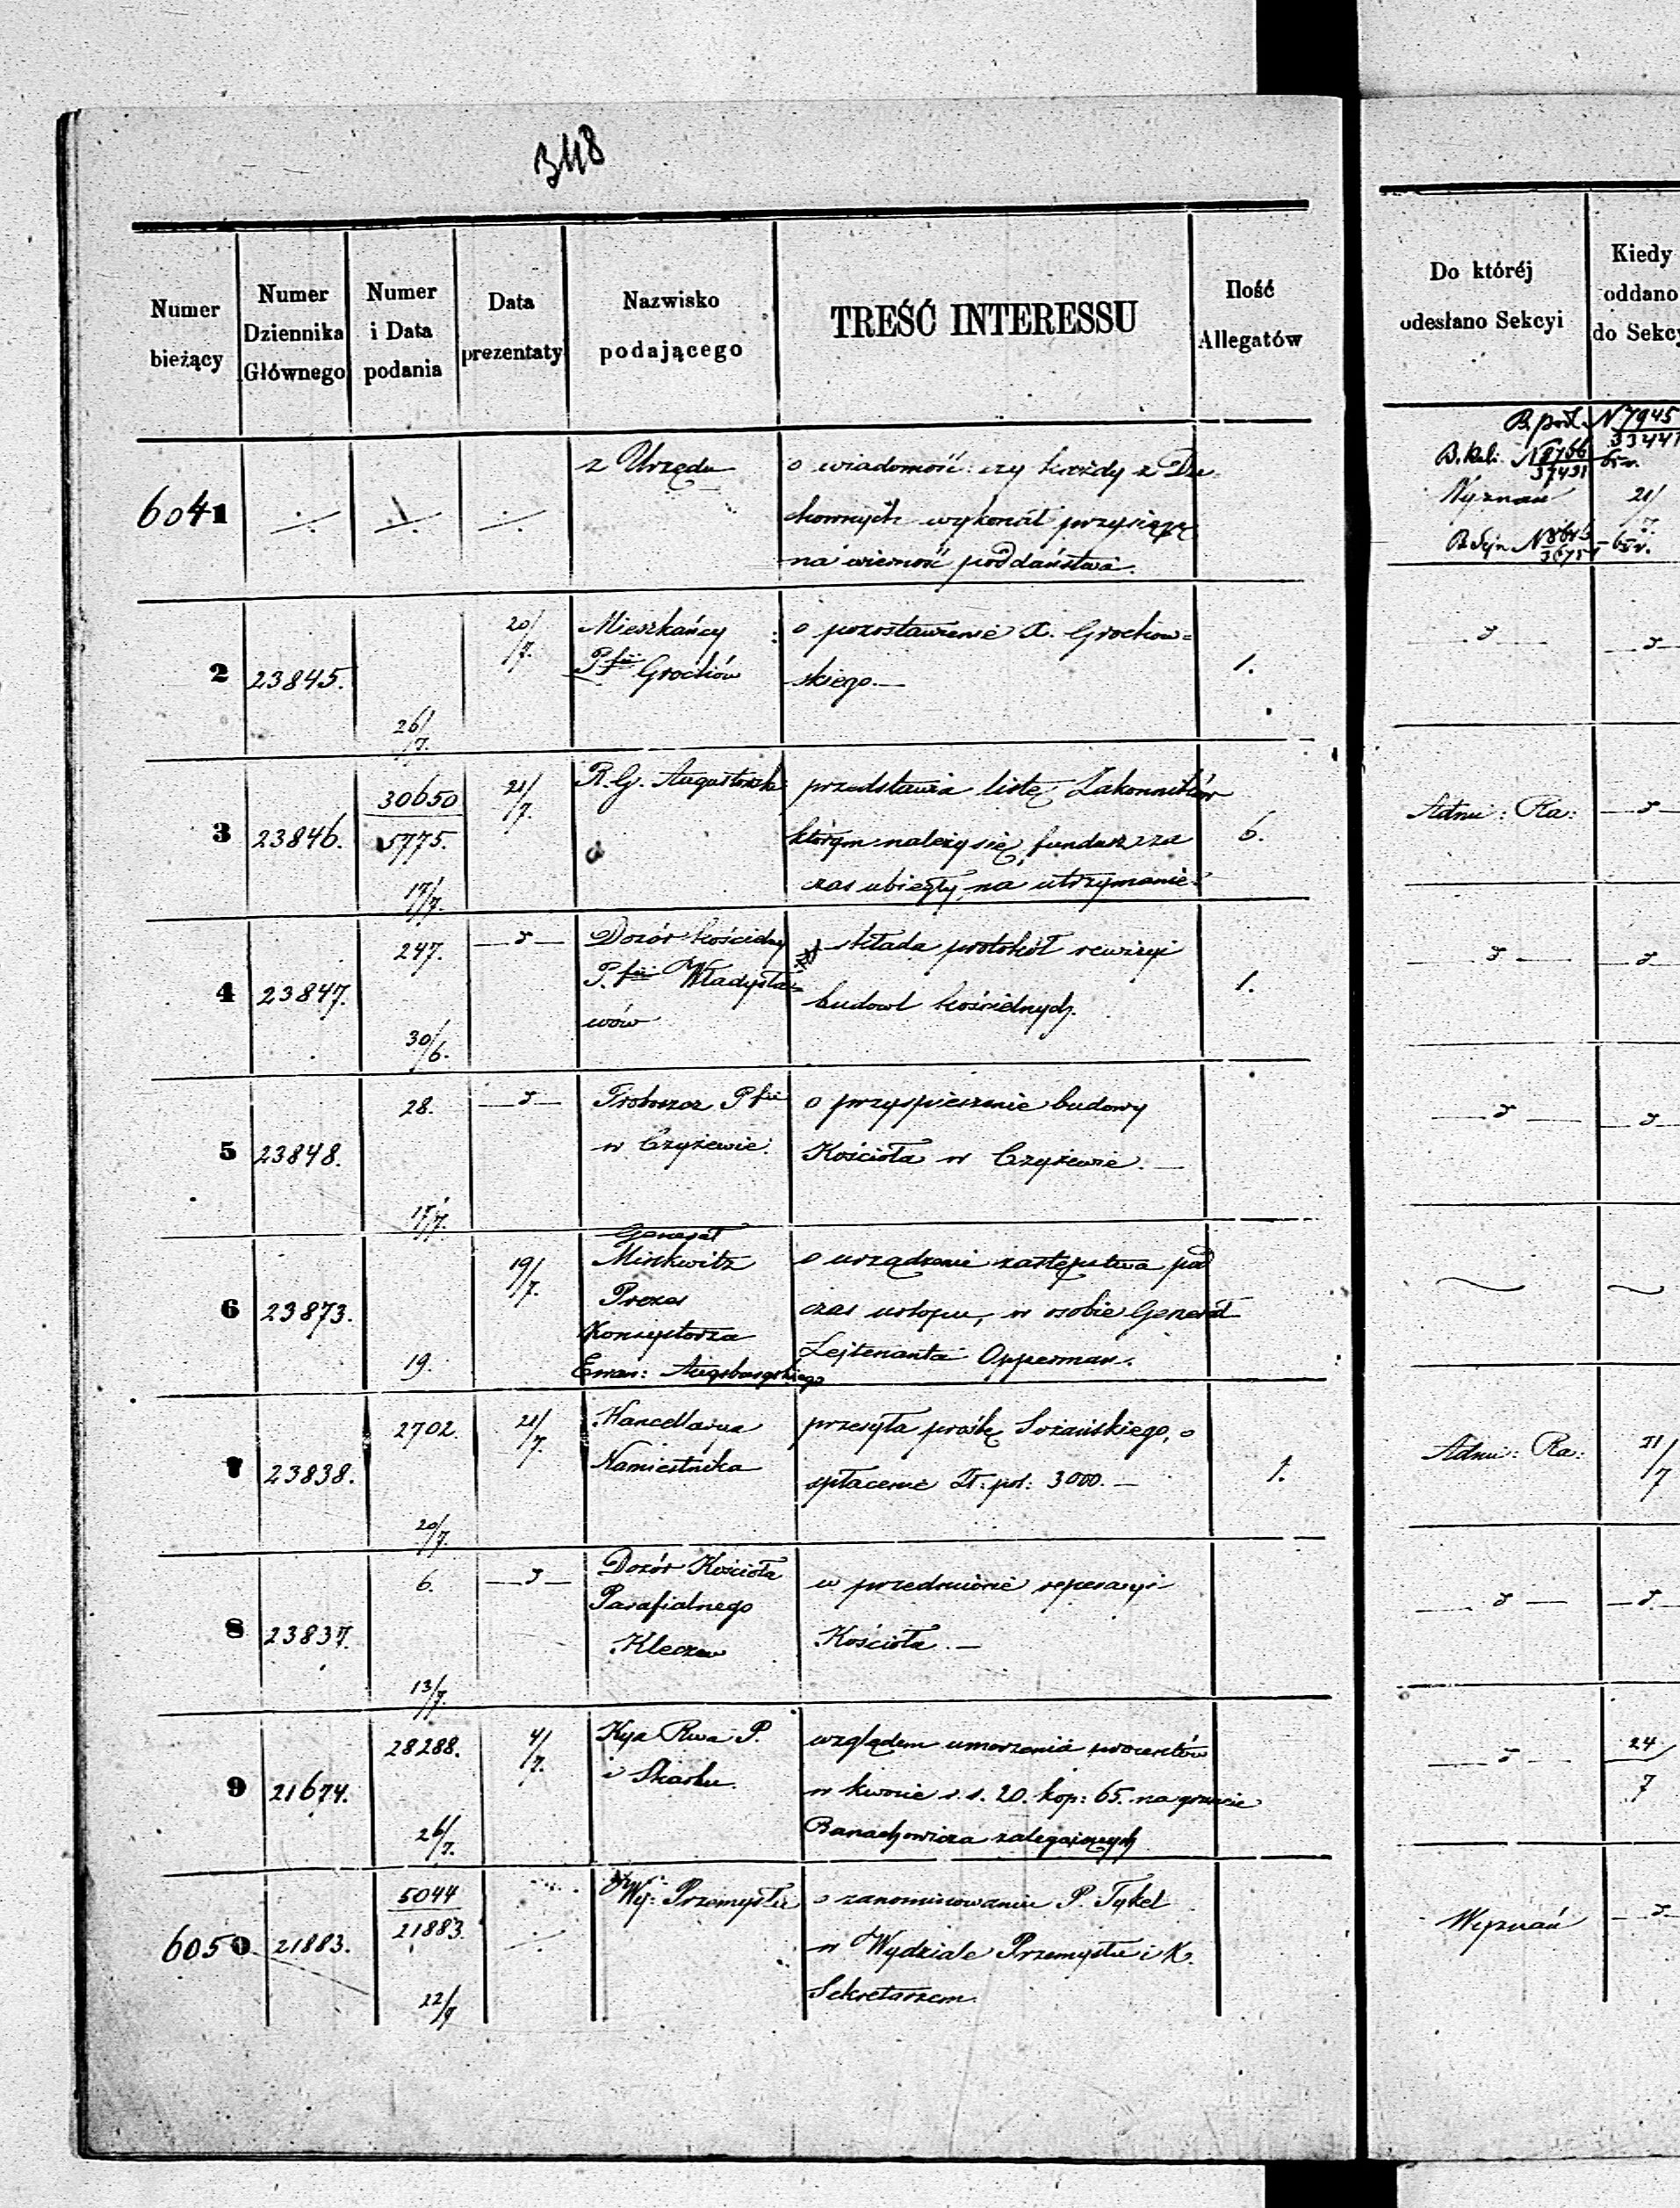 348
Numer bieżący
Numer Dziennika Głównego
Numer i Data podania
Data prezentaty
Nazwisko podającego
TREŚĆ INTERESSU
Ilość Allegatów
Do któréj odesłano Sekcyi
Kiedy oddano do Sekcy
6041
z Urzędu
o wiadomość: czy każdy z Du-
chownych wykonał przysięgę
na wierność poddaństwa.
B. podl. N 7945
33441
B. kal: N 8766
37431
Wyznań 21/7
B Sejn N
2 23845. 26/7. 20/7.
Mieszkańcy
Pfii Grochów
o pozostawienie X. Grochow=
skiego.—
1.
3 23846. 30650
5775.
17/7. 21/7.
R. G. Augustowski
przedstawia listę Zakonników
którym należy się fundusz za
czas ubiegły, na utrzymanie.
6.
Adm: Ra:
4 23847. 247. 30/6.
Dozór kościelny
P.fii Władysła-
wów
składa protokół rewizyi
budowl kościelnych.
1.
5 23848. 28. 17/7.
Proboszcz Pfii
w Czyżewie.
o przyspieszenie budowy
Kościoła w Czyżewie.—
6 23873. 19. 19/7.
Generał
Minkwitz
Prezes
Konsystorza
Ewan: Augsburgskiego
o urządzenie zastępstwa pod
czas urlopu, w osobie Generał
Lejtenanta Opperman.
7 23838. 2702. 20/7. 21/7.
Kancellarya
Namiestnika
przesyła prośbę Sożańskiego, o
spłacenie Zł: pol: 3000.—
1.
Adm: Ra: 21/7
8 23837. 6. 13/7.
Dozór Kościoła
Parafialnego
Kleczew
w przedmiocie reperacyi
Kościoła.—
9 21674. 28288. 26/7. 4/7.
Kya Rwa P.
i Skarbu.
względem umorzenia procentów
w kwocie r. s. 20. kop: 65. na gruncie
Banachowicza zalegających
24/7
6050 21883. 5044
21883.
22/7
Wy: Przemysłu
o zanominowaniu P. Tykel
w Wydziale Przemysłu i K.
Sekretarzem.
Wyznań